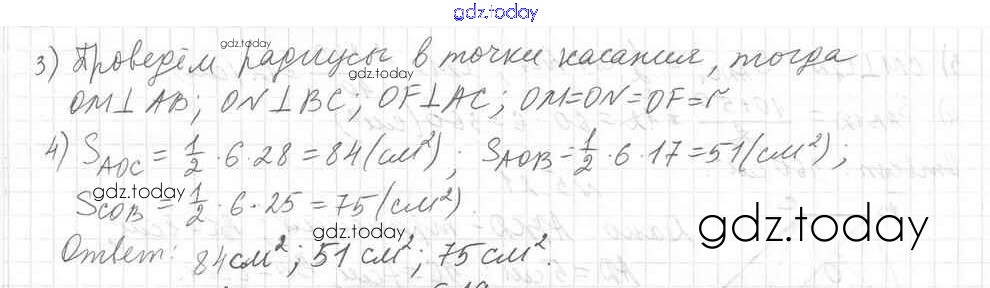 gdz.today
3) Проведём радиусы в точки касания, тогда
gdz.today
gdz.today
OM⊥AB; ON⊥BC; OF⊥AC; OM=ON=OF=r
4) S_AOC = 1/2 · 6 · 28 = 84 (см²); S_AOB = 1/2 · 6 · 17 = 51 (см²);
gdz.today
S_COB = 1/2 · 6 · 25 = 75 (см²).
gdz.today
gdz.today
Ответ: 84 см²; 51 см²; 75 см².